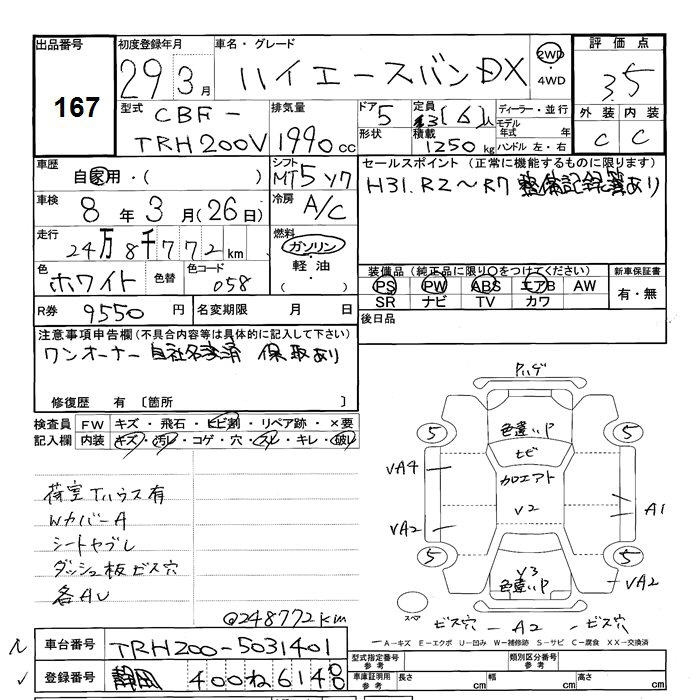 出品番号
167
初度登録年月
29 3月
車名・グレード
ハイエースバンDX
2WD
・
4WD
評価点
3.5
外装 内装
C C
型式
CBF-
TRH200V
排気量
1990 cc
ドア
5
形状
定員
[6]人
積載
1250 kg
ディーラー・並行
モデル
年式 年
ハンドル 左・右
車歴
自家用・( )
シフト
MT5
冷房
A/C
セールスポイント (正常に機能するものに限ります)
H31.R2~R7 整備記録簿あり
車検
8年3月(26日)
走行
24万8千772km
燃料
ガソリン
・
軽油
・
( )
色
ホワイト
色替
色コード
058
装備品(純正品に限り○をつけてください)
PS PW ABS エアB AW
SR ナビ TV カワ
新車保証書
有・無
R券 9550円
名変期限 月 日
後日品
注意事項申告欄(不具合内容等は具体的に記入して下さい)
ワンオーナー 自社名変済 保取あり
修復歴 有〔箇所 〕
検査員
記入欄
FW キズ・飛石・ヒビ割・リペア跡・×要
内装 キズ・汚レ・コゲ・穴・スレ・キレ・破レ
荷室Tハウス有
WカバーA
シートヤブレ
ダッシュ板ビス穴
各AU
@248772km
ハゲ
色違いP
ヒビ
カロエアト
V2
V3
色違いP
5
5
5
5
VA4
VA2
A1
VA2
スペア
ビス穴 - A2 - ビス穴
A-キズ E-エクボ U-凹み W-補修跡 S-サビ C-腐食 XX-交換済
車台番号 TRH200-5031401
登録番号 静岡 400ね6148
型式指定番号
参考
類別区分番号
参考
車庫証明用
参考
長さ cm
幅 cm
高さ cm